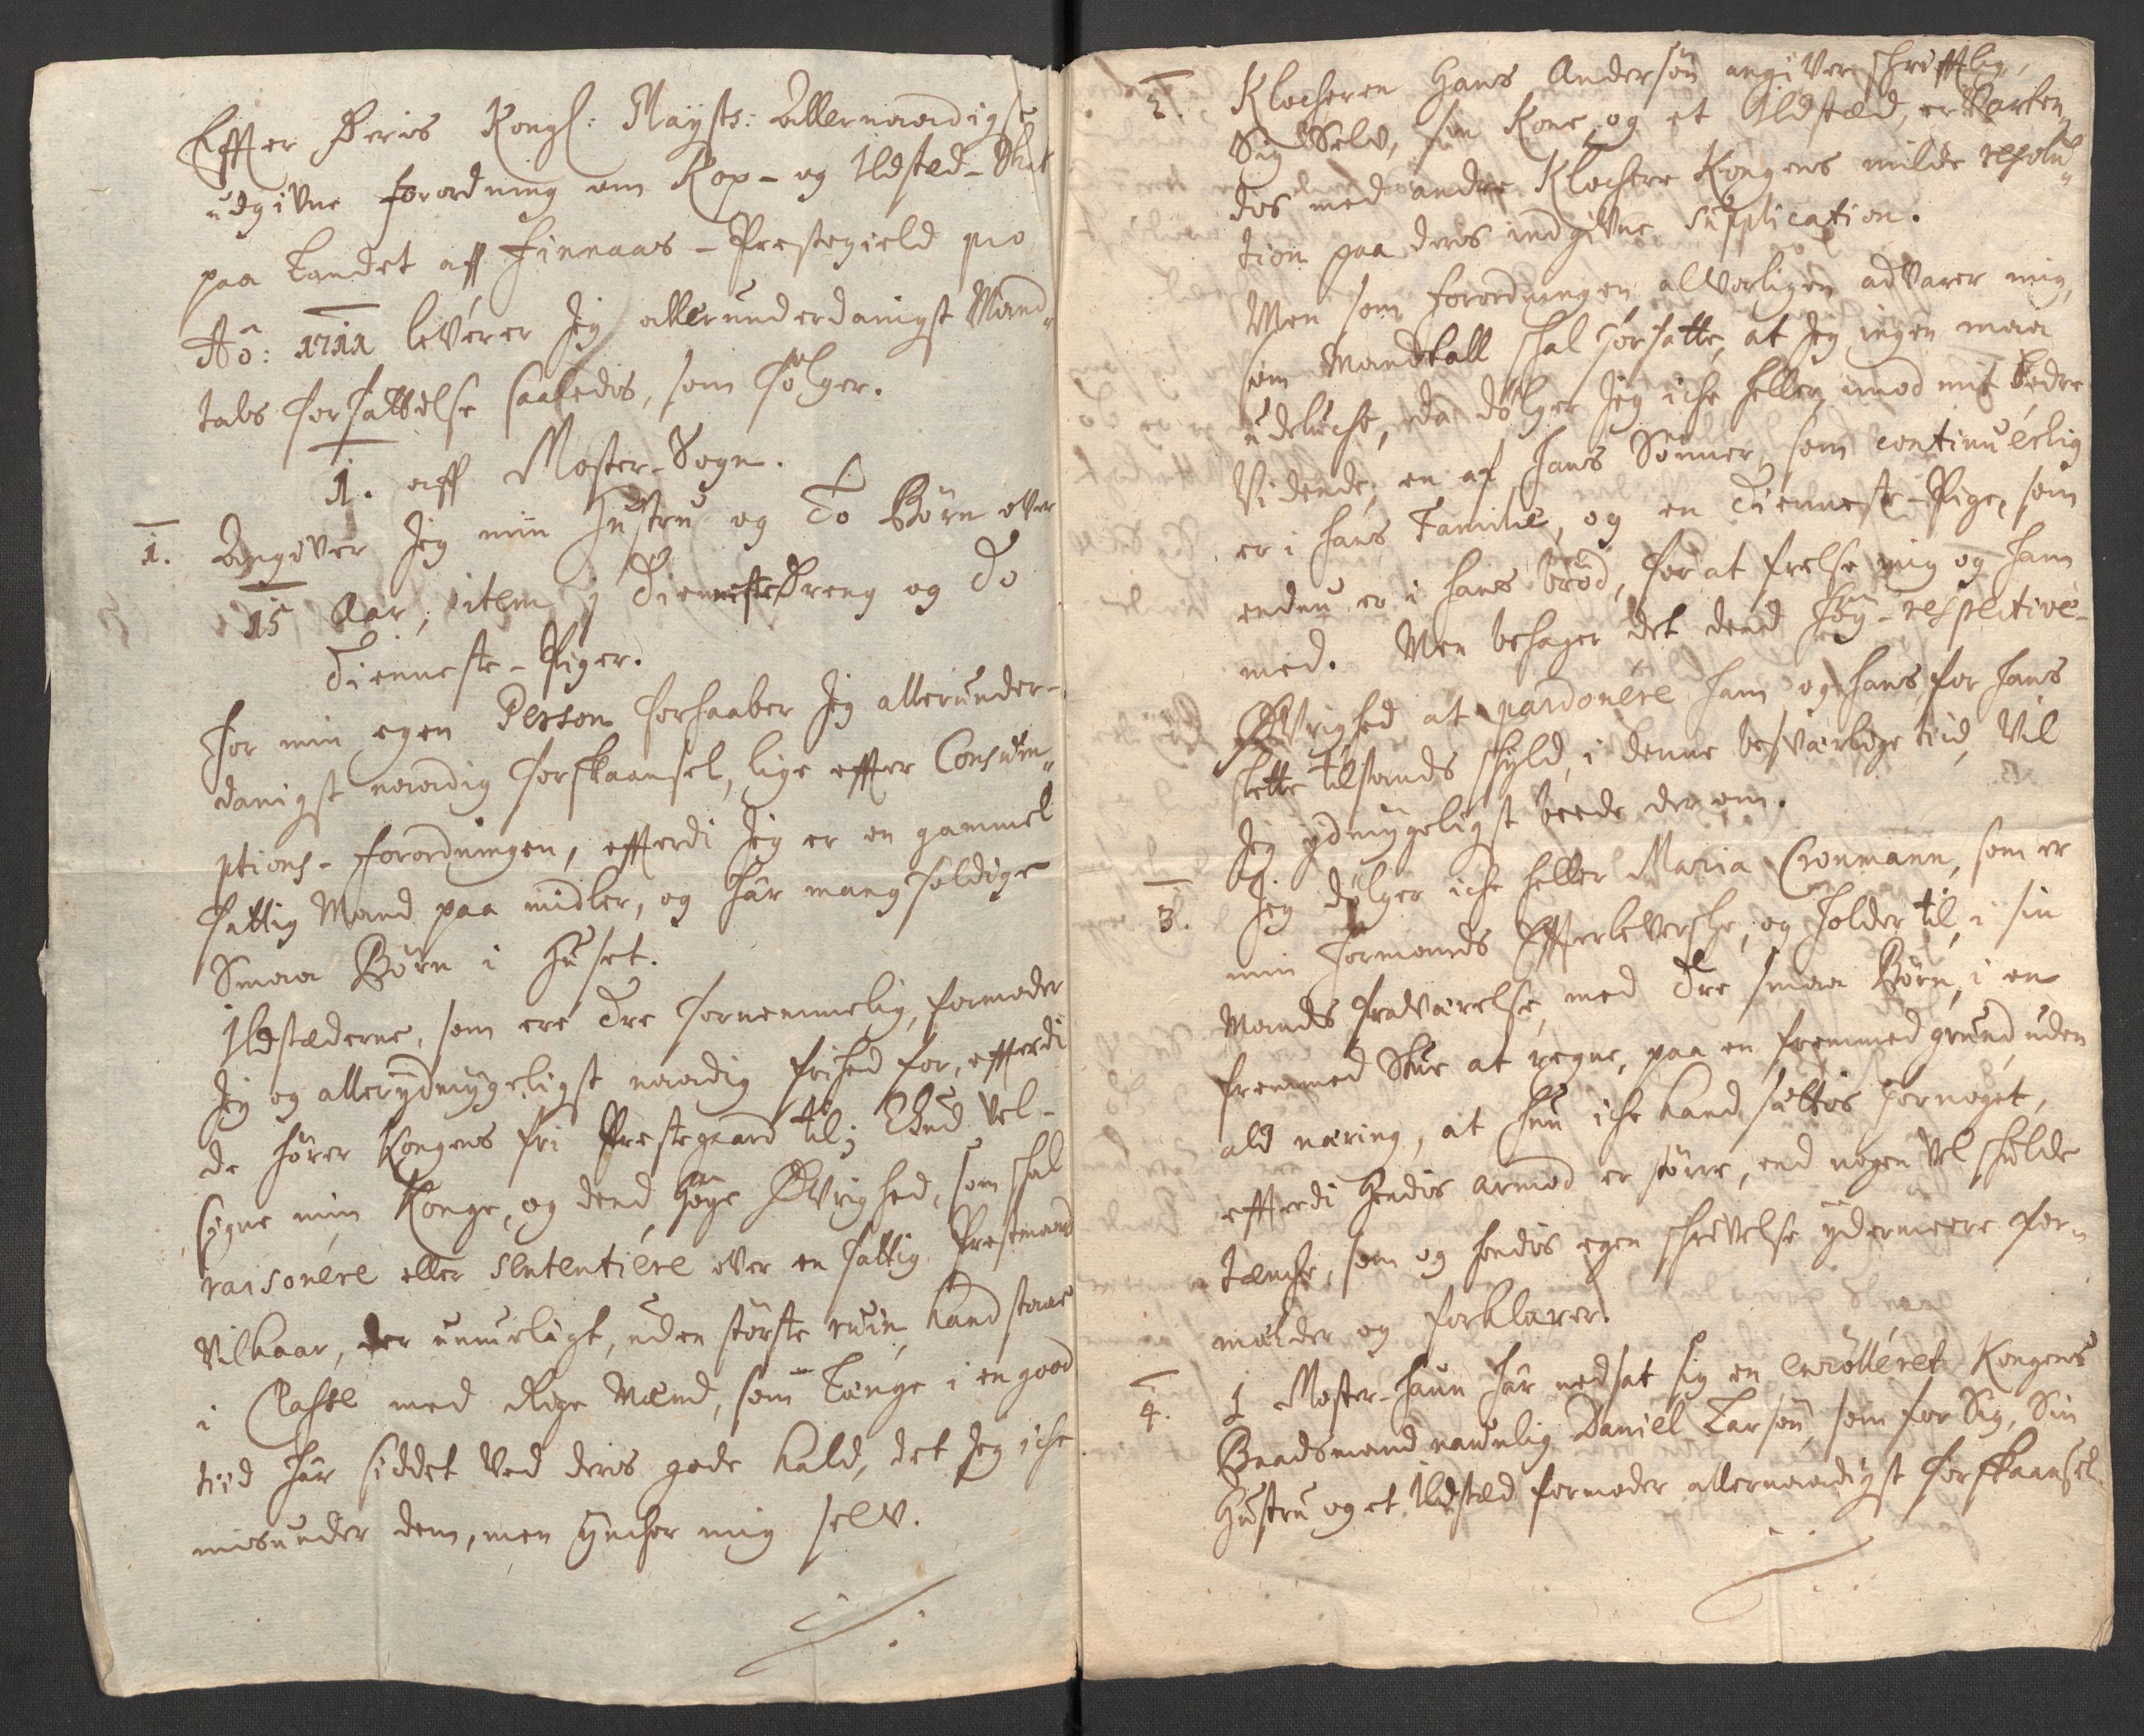 Effter Deris Kongl: Maysts: Allernaadigste
udgivne forordning om Kop- og Ildsted-Skat
paa Landet aff Finnaas-Prestegield pro
Aô: 1711 leverer Jeg allerunderdanigst Mand„
tals forfattelse saaledis, som følger.
1. aff Moster-Sogn.
1. Angiver Jeg min Hustru og To Børn over
15 Aar, item j Tienneste Dreng og To
Tienneste-Piger.
For min egen Person forhaaber Jeg allerunder-
danigst naadig forskaansel, lige effter Consum„
ptions-forordningen, efferdi Jeg er en gammel
fattig Mand paa midler, og har mangfoldige
Smaa Børn i Huset.
Ildstæderne, som ere Tre fornemmelig, formoder
Jeg og allerydmygeligst naadig frihed for, efferdi
de hører Kongens fri Prestegaard til; Gud Vel-
signe min Konge, og dend Høye Øvrighed, som skal
raisonere eller sententiere over en fattig Prestmand
Vilkaar, der umueligt, uden største ruin, kand staae
i Classe med Rige Mænd, som Længe i en good
tiid har siddet Ved deris gode kald, det Jeg iche
misunder dem, men ynsker mig selv.
2. Klocheren Hans Andersøn angiver schrifftlig,
Sig Selv, sin Kone og et Ildsted, er Varten„
dis med andre Klochere Kongens milde resolu„
tion paa deris indgivne Supplication.
Men som forordningen alvorligen advarer mig,
som Mandtall skal forfatte, at Jeg ingen maa
udeluche, da dølger Jeg iche heller imod mit bedre
Vidende, en af hans Sønner, som continuerlig
er i hans Familie, og en Tienneste-Pige, som
endnu er i hans brød, for at frelse mig og ham
med. Men behager det dend Høy-respective-
Øvrighed at pardonere ham og hans for hans
slette tilstands skyld, i denne besværlige tiid, Vil
Jeg ydmygeligst beede der om.
3. Jeg dølger iche heller Maria Cronmann, som er
min Formands Effterleversche, og holder til, i sin
Mands fraværelse, med Tre smaa Børn, i en
fremmed Stue at regne, paa en fremmed grund, uden
ald næring, at hun iche kand sættis for noget,
efferdi Hendis armod er større, end nogen Vel skulde
tænche, som og hendis egen schrivelse ydermeere for„
melder og forklarer.
4. I Moster-Hafn har nedsat sig en enrolleret Kongens
Baadsmand navnlig Daniel Larsøn, som for Sig, Sin
Hustru og et Ildsted formoder allernaadigst forskaansel